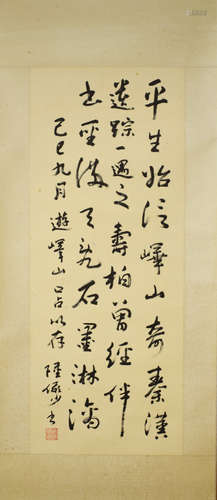 平生始信嶧山奇秦漢
遺踪一遇之壽柏曾經伴
聖滿天亂石墨淋漓
己巳九月遊嶧山口占以存
陸儼少書